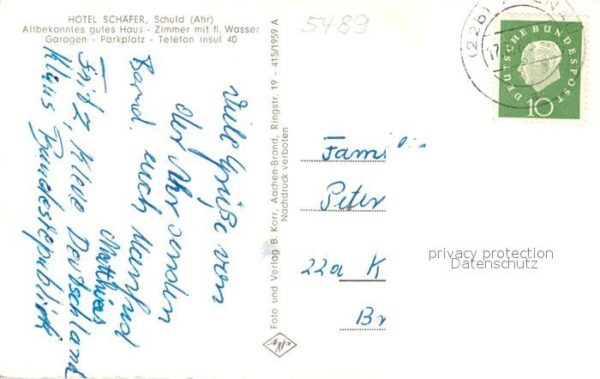 HOTEL SCHÄFER, Schuld (Ahr)
Altbekanntes gutes Haus - Zimmer mit fl. Wasser
Garagen - Parkplatz - Telefon Insul 40
5489
Viele Grüße von
der Ahr senden
auch Manfred
Matthias
Fritz, Deutschland
Klaus Bundesrepublik
Foto und Verlag B. Korr, Aachen-Brand, Ringstr. 19 - 415/1959 A
Nachdruck verboten
Familie
Peter
22a K
Br
(22b)
17
DEUTSCHE BUNDESPOST
10
privacy protection
Datenschutz